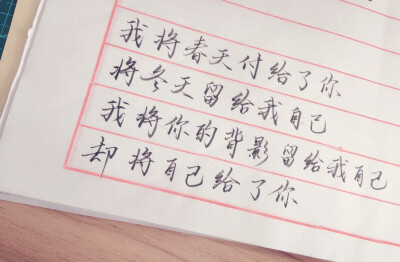 我将春天付给了你
将冬天留给我自己
我将你的背影留给我自己
却将自己给了你